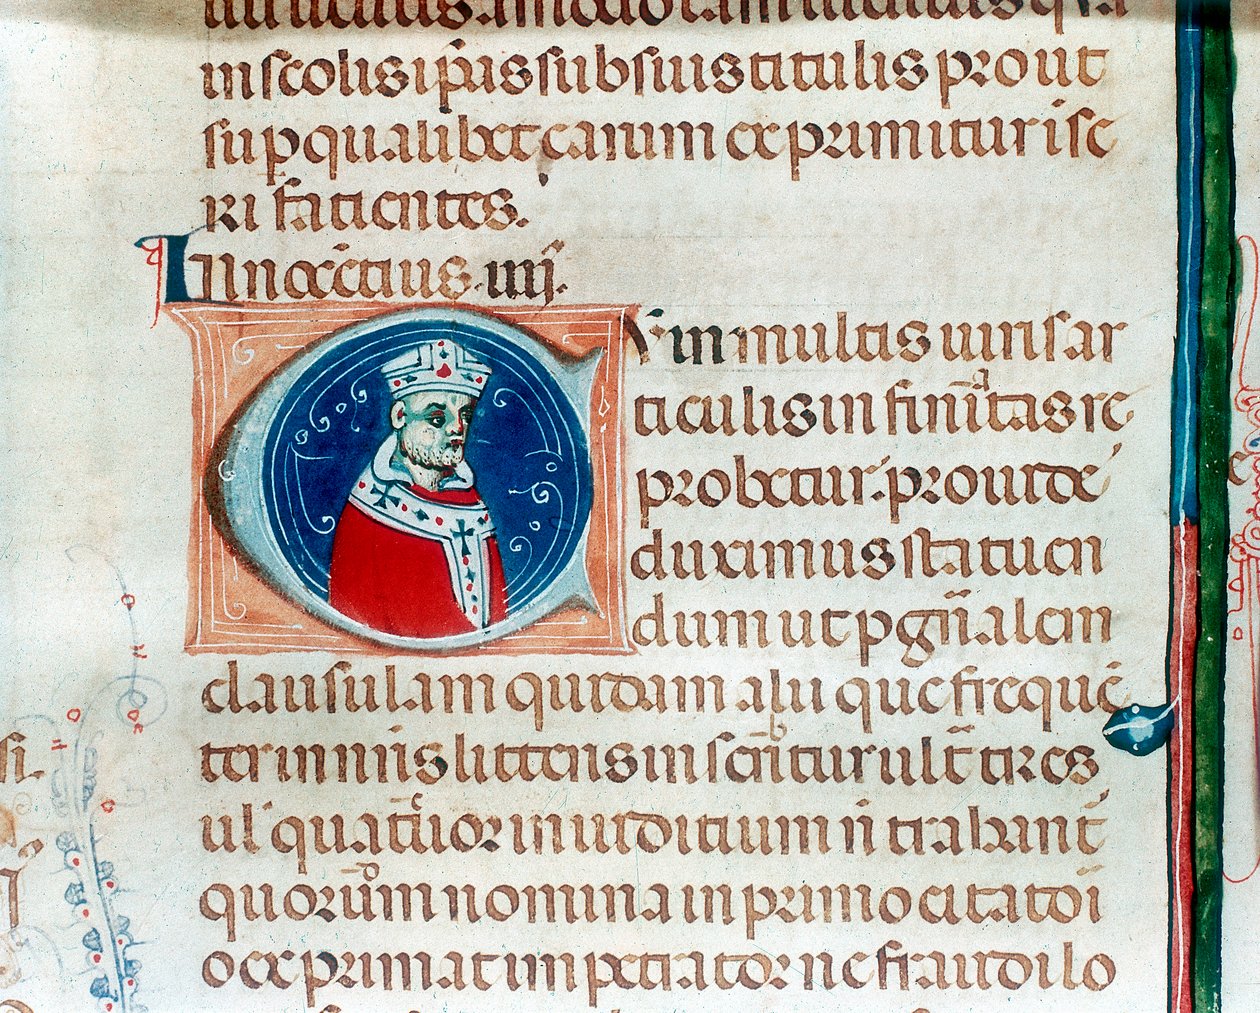 in scolis ip̄as sub suis titulis prout
sup̱ qualibet earum exprimitur ise
ri facientes.
Innocētius iiij̄.
Cvm in multis iuris ar
ticulis infinitas re
probetur. prouide
duximus statuen
dum ut p gn̄alem
clausulam quidam alii que freqūē
ter in nr̄is litteris inseritur ult̄ tres
ul' quatuor in iuditium n̄ trahant̄
quorum nomina in primo citatori
o exprimat impetrator ne fraudi lo